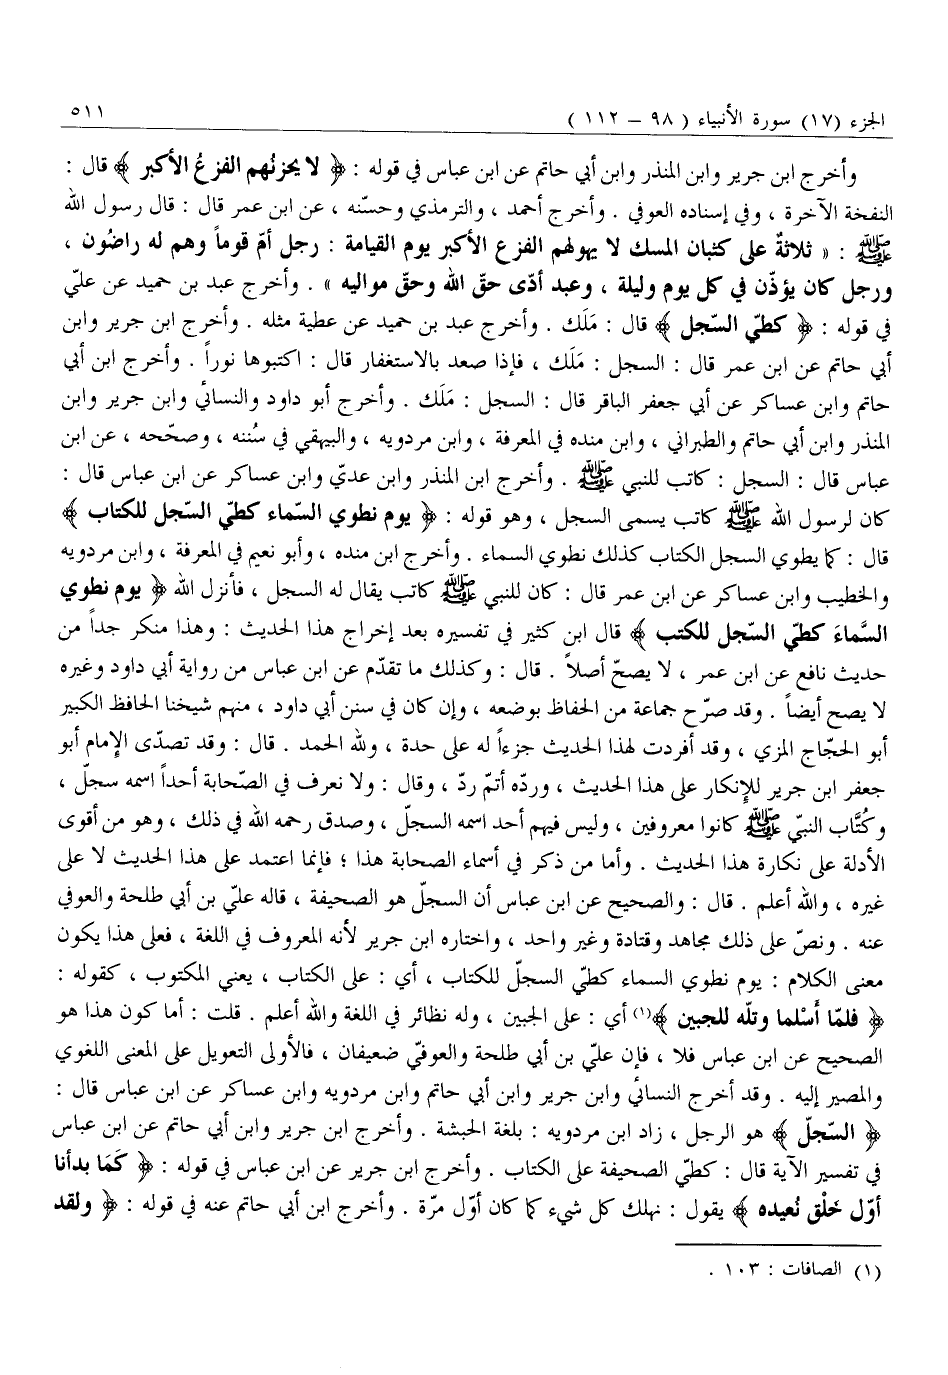 الجزء (١٧) سورة الأنبياء ( ٩٨ – ١١٢ ) ٥١١
وأخرج ابن جرير وابن المنذر وابن أبي حاتم عن ابن عباس في قوله : ﴿ لا يحزنُهم الفزعُ الأكبر ﴾ قال :
النفخة الآخرة ، وفي إسناده العوفي . وأخرج أحمد ، والترمذي وحسّنه ، عن ابن عمر قال : قال رسول الله
ﷺ : « ثلاثةٌ على كثبان المسك لا يهولهم الفزع الأكبر يوم القيامة : رجل أمّ قوماً وهم له راضُون ،
ورجل كان يؤذّن في كل يوم وليلة ، وعبد أدّى حقّ الله وحقّ مواليه » . وأخرج عبد بن حميد عن عليّ
في قوله : ﴿ كطيّ السّجل ﴾ قال : مَلَك . وأخرج عبد بن حميد عن عطية مثله . وأخرج ابن جرير وابن
أبي حاتم عن ابن عمر قال : السجل : مَلَك ، فإذا صعد بالاستغفار قال : اكتبوها نوراً . وأخرج ابن أبي
حاتم وابن عساكر عن أبي جعفر الباقر قال : السجل : مَلَك . وأخرج أبو داود والنسائي وابن جرير وابن
المنذر وابن أبي حاتم والطبراني ، وابن منده في المعرفة ، وابن مردويه ، والبيهقي في سُننه ، وصحّحه ، عن ابن
عباس قال : السجل : كاتب للنبي ﷺ . وأخرج ابن المنذر وابن عديّ وابن عساكر عن ابن عباس قال :
كان لرسول الله ﷺ كاتب يسمى السجل ، وهو قوله : ﴿ يوم نطوي السّماء كطيّ السّجل للكتاب ﴾
قال : كما يطوي السجل الكتاب كذلك نطوي السماء . وأخرج ابن منده ، وأبو نعيم في المعرفة ، وابن مردويه
والخطيب وابن عساكر عن ابن عمر قال : كان للنبي ﷺ كاتب يقال له السجل ، فأنزل الله ﴿ يوم نطوي
السَّماءَ كطيّ السّجل للكتب ﴾ قال ابن كثير في تفسيره بعد إخراج هذا الحديث : وهذا منكر جداً من
حديث نافع عن ابن عمر ، لا يصحّ أصلاً . قال : وكذلك ما تقدّم عن ابن عباس من رواية أبي داود وغيره
لا يصح أيضاً . وقد صرّح جماعة من الحفاظ بوضعه ، وإن كان في سنن أبي داود ، منهم شيخنا الحافظ الكبير
أبو الحجّاج المزي ، وقد أفردت لهذا الحديث جزءاً له على حدة ، ولله الحمد . قال : وقد تصدّى الإمام أبو
جعفر ابن جرير للإنكار على هذا الحديث ، وردّه أتمّ ردّ ، وقال : ولا نعرف في الصّحابة أحداً اسمه سجلّ ،
وكُتَّاب النبيّ ﷺ كانوا معروفين ، وليس فيهم أحد اسمه السجلّ ، وصدق رحمه الله في ذلك ، وهو من أقوى
الأدلة على نكارة هذا الحديث . وأما من ذكر في أسماء الصحابة هذا ؛ فإنما اعتمد على هذا الحديث لا على
غيره ، والله أعلم . قال : والصحيح عن ابن عباس أن السجلّ هو الصحيفة ، قاله عليّ بن أبي طلحة والعوفي
عنه . ونصّ على ذلك مجاهد وقتادة وغير واحد ، واختاره ابن جرير لأنه المعروف في اللغة ، فعلى هذا يكون
معنى الكلام : يوم نطوي السماء كطيّ السجلّ للكتاب ، أي : على الكتاب ، يعني المكتوب ، كقوله :
﴿ فلمّا أَسْلما وتلّه للجبين ﴾(١) أي : على الجبين ، وله نظائر في اللغة والله أعلم . قلت : أما كون هذا هو
الصحيح عن ابن عباس فلا ، فإن عليّ بن أبي طلحة والعوفيّ ضعيفان ، فالأولى التعويل على المعنى اللغوي
والمصير إليه . وقد أخرج النسائي وابن جرير وابن أبي حاتم وابن مردويه وابن عساكر عن ابن عباس قال :
﴿ السّجلّ ﴾ هو الرجل ، زاد ابن مردويه : بلغة الحبشة . وأخرج ابن جرير وابن أبي حاتم عن ابن عباس
في تفسير الآية قال : كطيّ الصحيفة على الكتاب . وأخرج ابن جرير عن ابن عباس في قوله : ﴿ كَمَا بدأنا
أوّل خَلْق نُعيده ﴾ يقول : نهلك كل شيء كما كان أوّل مرّة . وأخرج ابن أبي حاتم عنه في قوله : ﴿ ولقد
(١) الصافات : ١٠٣ .